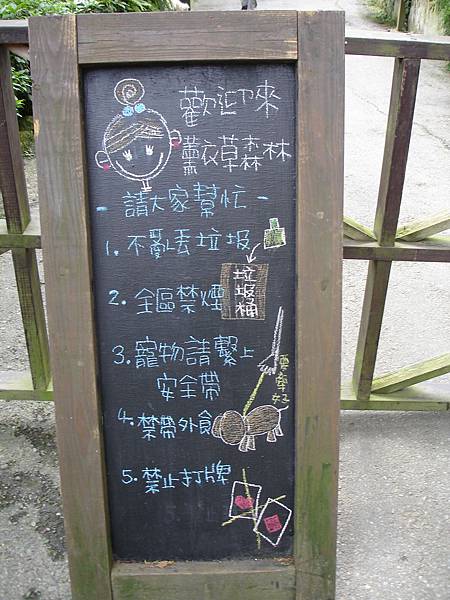 歡迎來
薰衣草森林
-請大家幫忙-
1.不亂丟垃圾
垃圾桶
2.全區禁煙
3.寵物請繫上
安全帶
要牽好
4.禁帶外食
5.禁止打牌